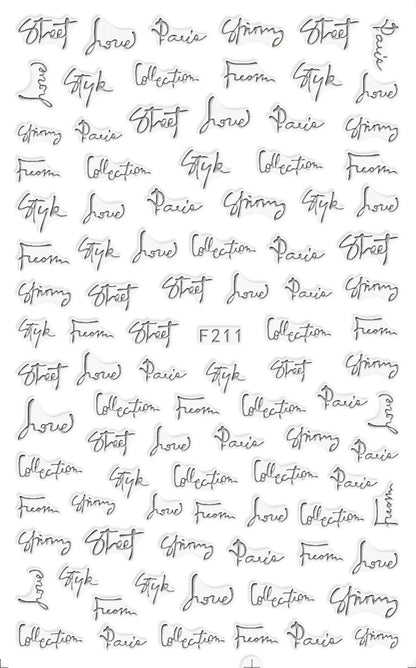 Street Love Paris Spring Street Paris
Love Style Collection Style Love
Spring Paris Street Love Paris Spring
Collection Style Collection
Style Love Paris Spring Style Love
Style Love Collection Paris Street
Spring Street Street Love Paris Spring
Style Street F211 Collection
Street Love Paris Style Street Spring
Love Collection Collection Paris Love
Street Love Paris Spring Paris
Collection Style Collection Collection Paris
Spring Love Love Collection
Spring Street Spring Paris Spring
Love Style Style Love Collection Spring
Collection Paris Collection Love Paris Spring